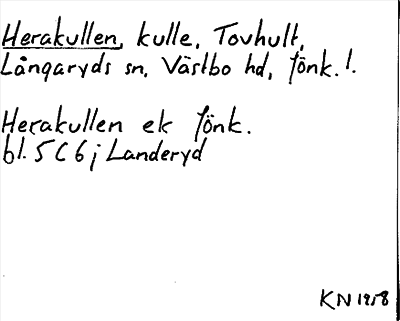 Herakullen, kulle, Tovhult,
Långaryds sn, Västbo hd, Jönk. l.
Herakullen ek Jönk.
bl. 5 C 6 j Landeryd
KN 1958